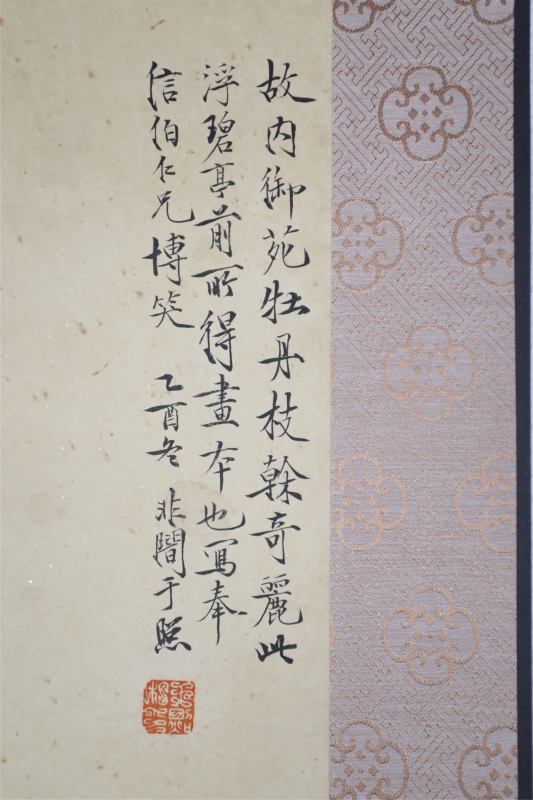 故内御苑牡丹枝榦奇麗此
浮碧亭前所得畫本也寫奉
信伯仁兄博笑 乙酉冬 非闇于照